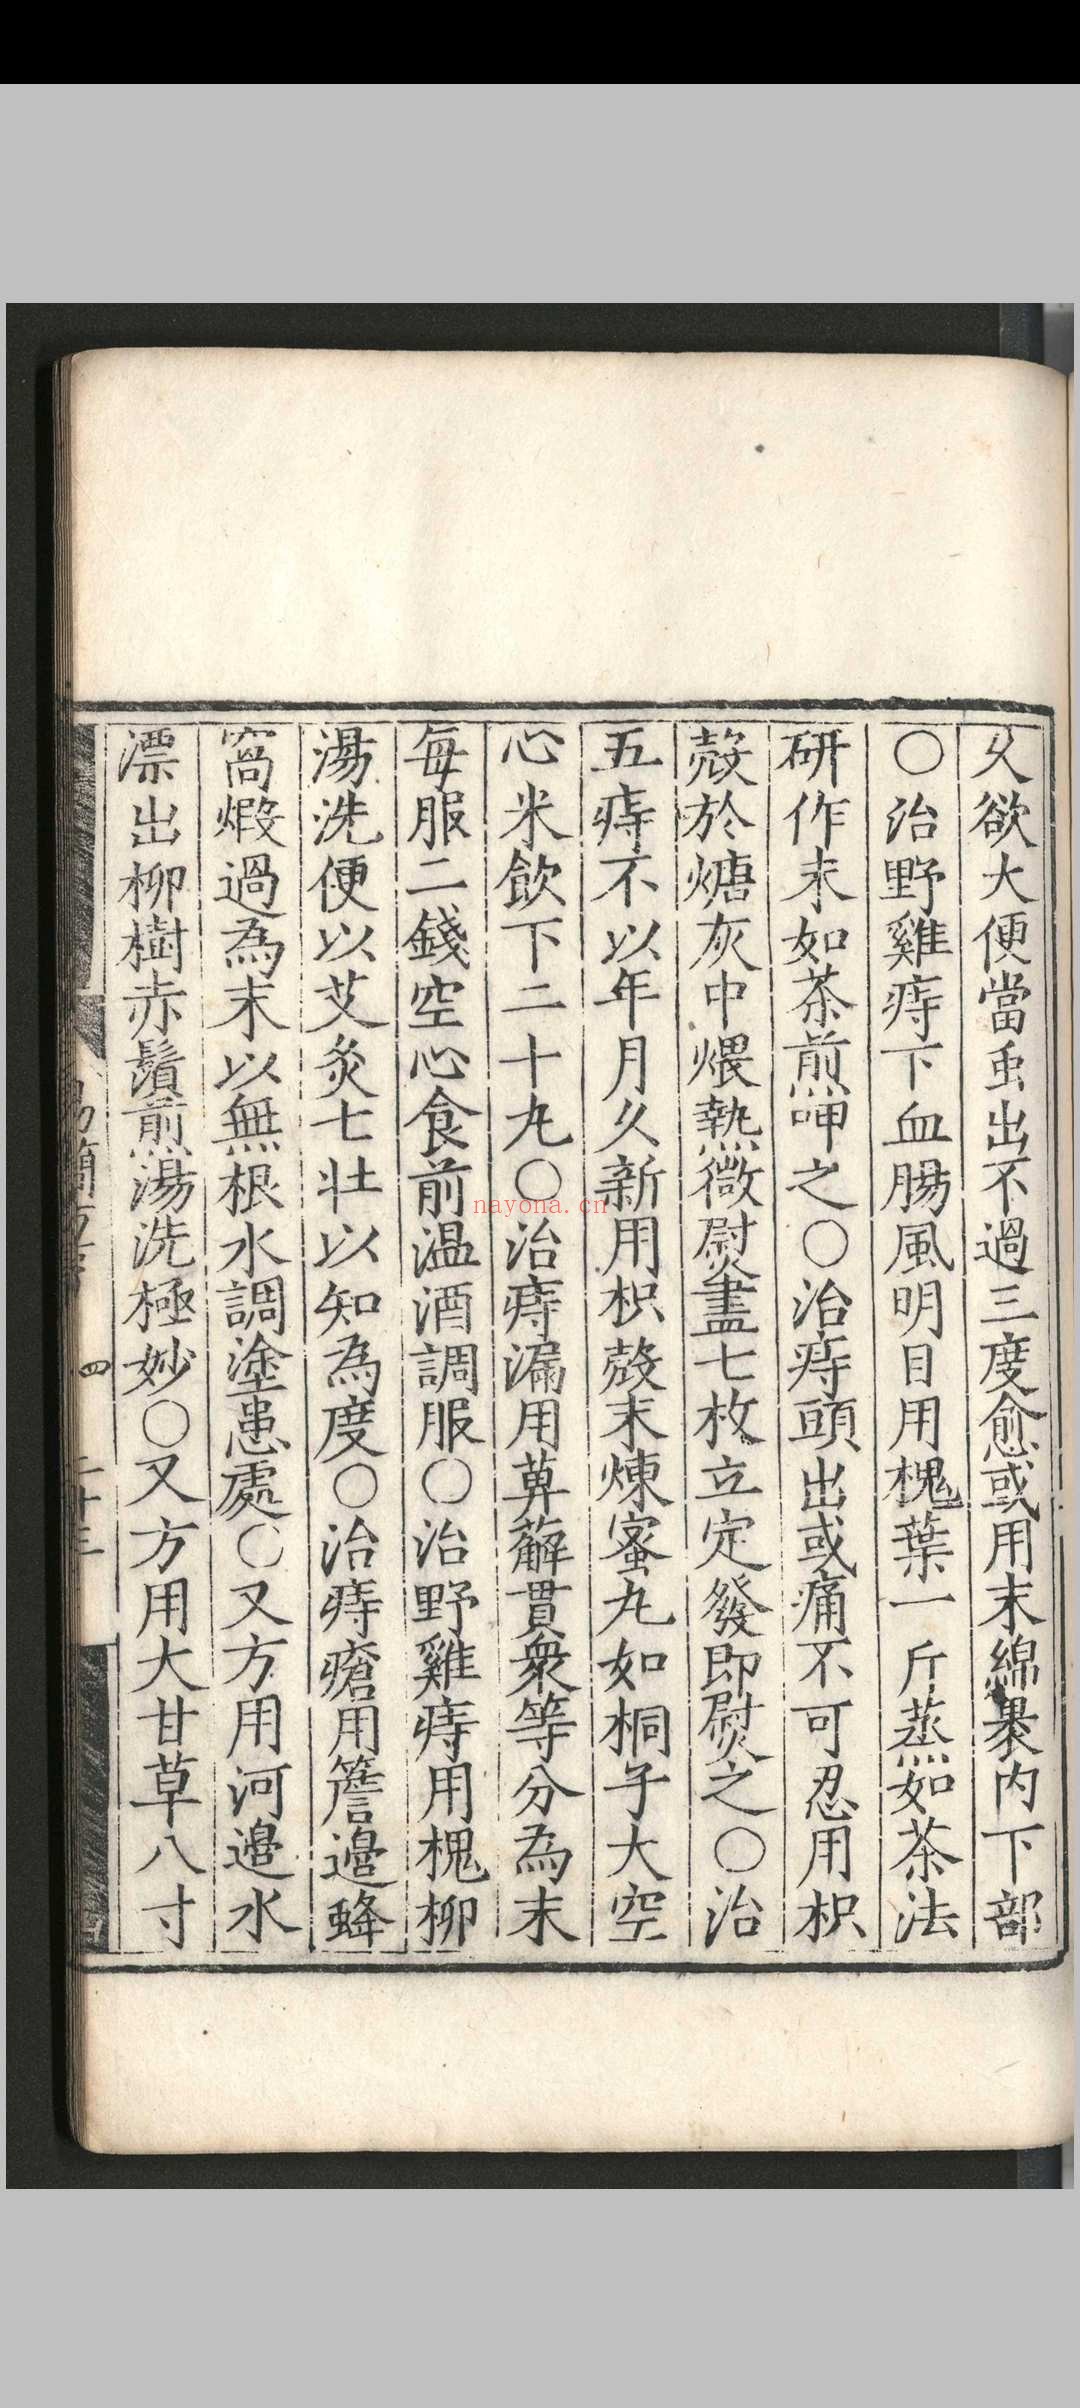 久欲大便當䖝出不過三度愈或用末綿裹内下部
○治野雞痔下血腸風明目用槐葉一斤蒸如茶法
研作末如茶煎呷之○治痔頭出或痛不可忍用枳
殼於煻灰中煨熱微熨盡七枚立定發即熨之○治
五痔不以年月久新用枳殼末煉蜜丸如桐子大空
心米飲下二十丸○治痔漏用萆薢貫衆等分為末
每服二錢空心食前温酒調服○治野雞痔用槐柳
湯洗便以艾灸七壮以知為度○治痔瘡用簷邉蜂
窩煅過為末以無根水調塗患處○又方用河邉水
漂出柳樹赤鬚煎湯洗極妙○又方用大甘草八寸
四
二十三
nayona.cn